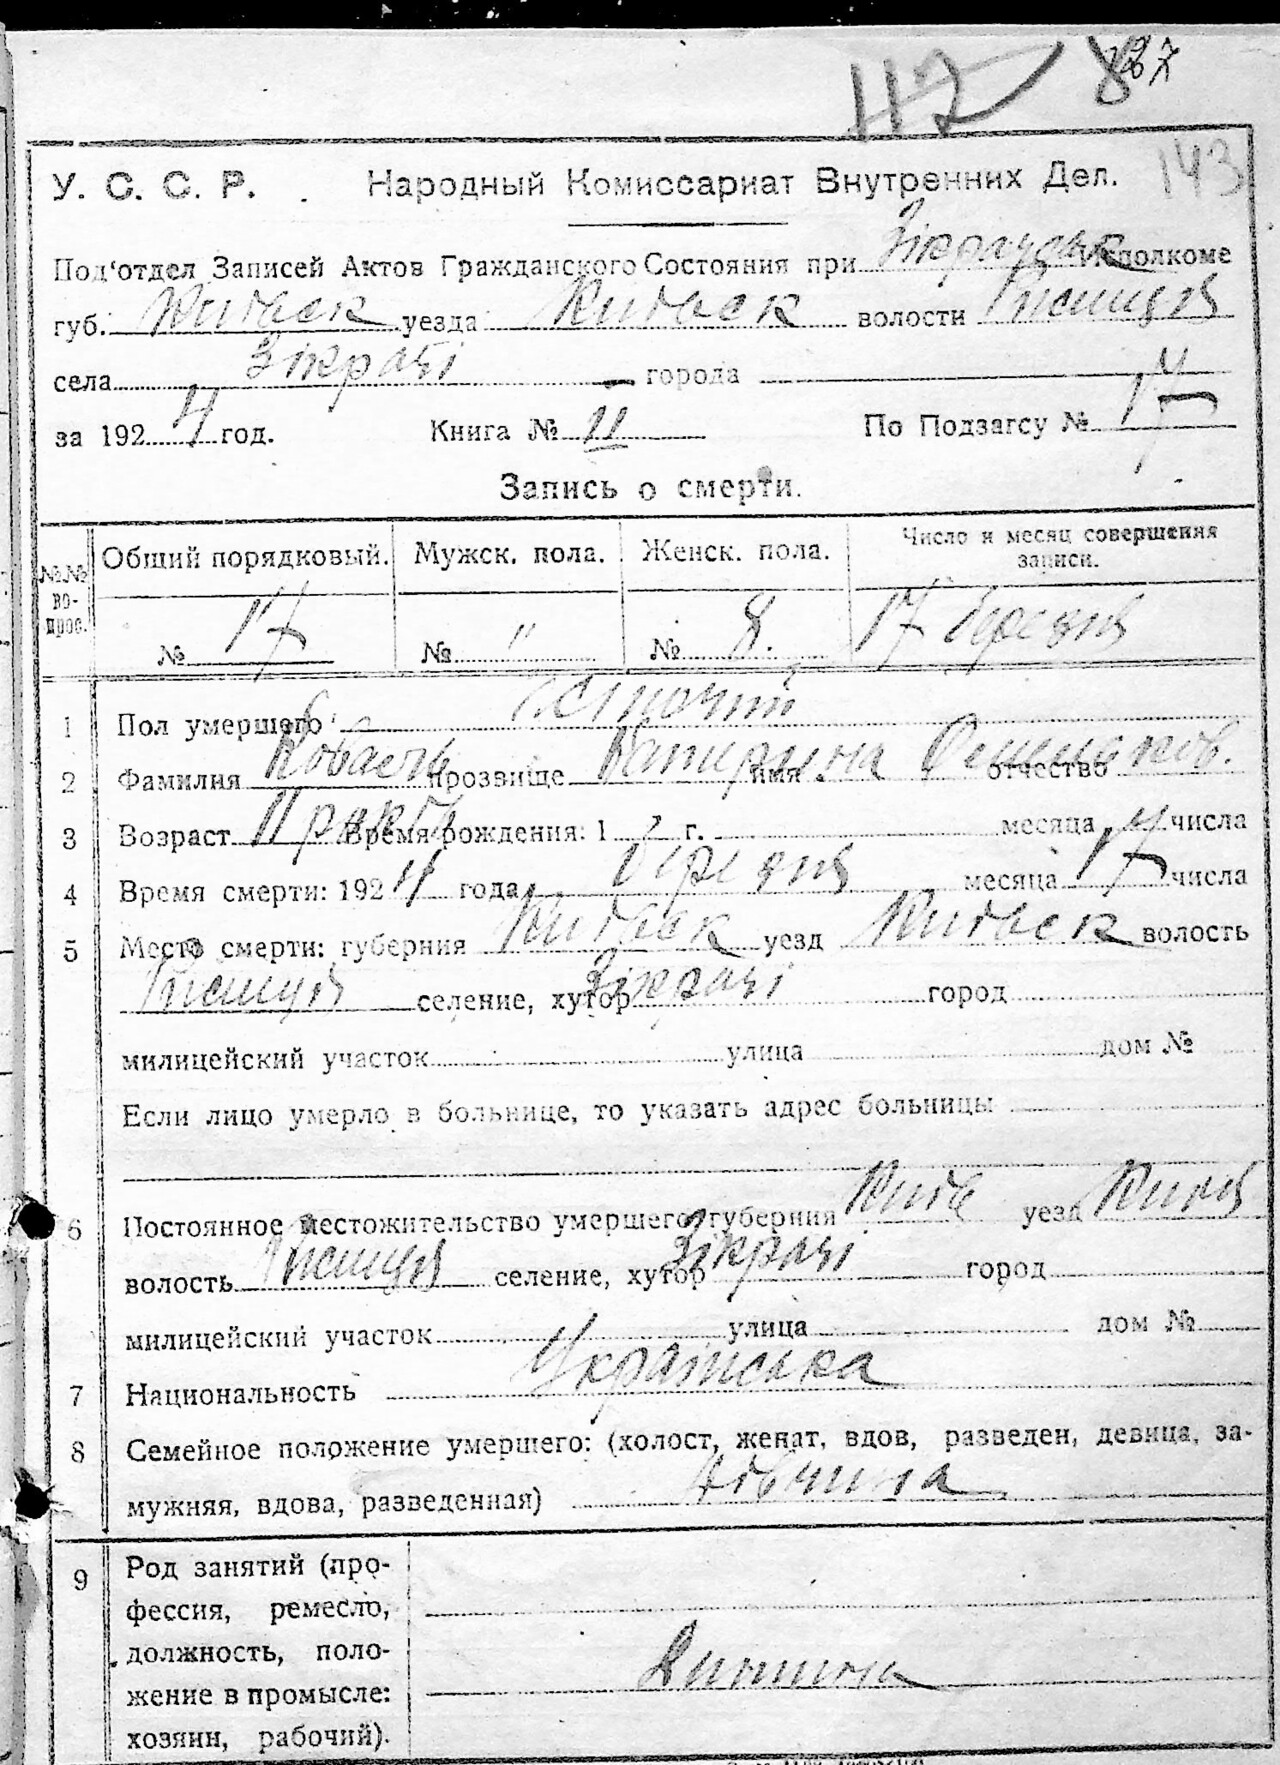 117 827
143
У. С. С. Р. Народный Комиссариат Внутренних Дел.
Под'отдел Записей Актов Гражданского Состояния при Зікрачськ Исполкоме
губ. Київськ уезда Київськ волости Ржищев
села Зікрачі города
за 1924 год. Книга № II По Подзагсу № 17
Запись о смерти.
№№ вопрос. Общий порядковый. Мужск. пола. Женск. пола. Число и месяц совершения записи.
№ 17 № " № 8. 17 березня
1 Пол умершего жіночий
2 Фамилия Коваель прозвище Катерина имя отчество
3 Возраст Время рождения: 1 г. месяца 17 числа
4 Время смерти: 1924 года березня месяца 17 числа
5 Место смерти: губерния Київськ уезд Київськ волость
Ржищев селение, хутор Зікрачі город
милицейский участок улица дом №
Если лицо умерло в больнице, то указать адрес больницы
6 Постоянное местожительство умершего: губерния Київ уезд Київ
волость Ржищев селение, хутор Зікрачі город
милицейский участок улица дом №
7 Национальность Українська
8 Семейное положение умершего: (холост, женат, вдов, разведен, девица, за-
мужняя, вдова, разведенная) дівчина
9 Род занятий (про-
фессия, ремесло,
должность, поло-
жение в промысле: Дитина
хозяин, рабочий).